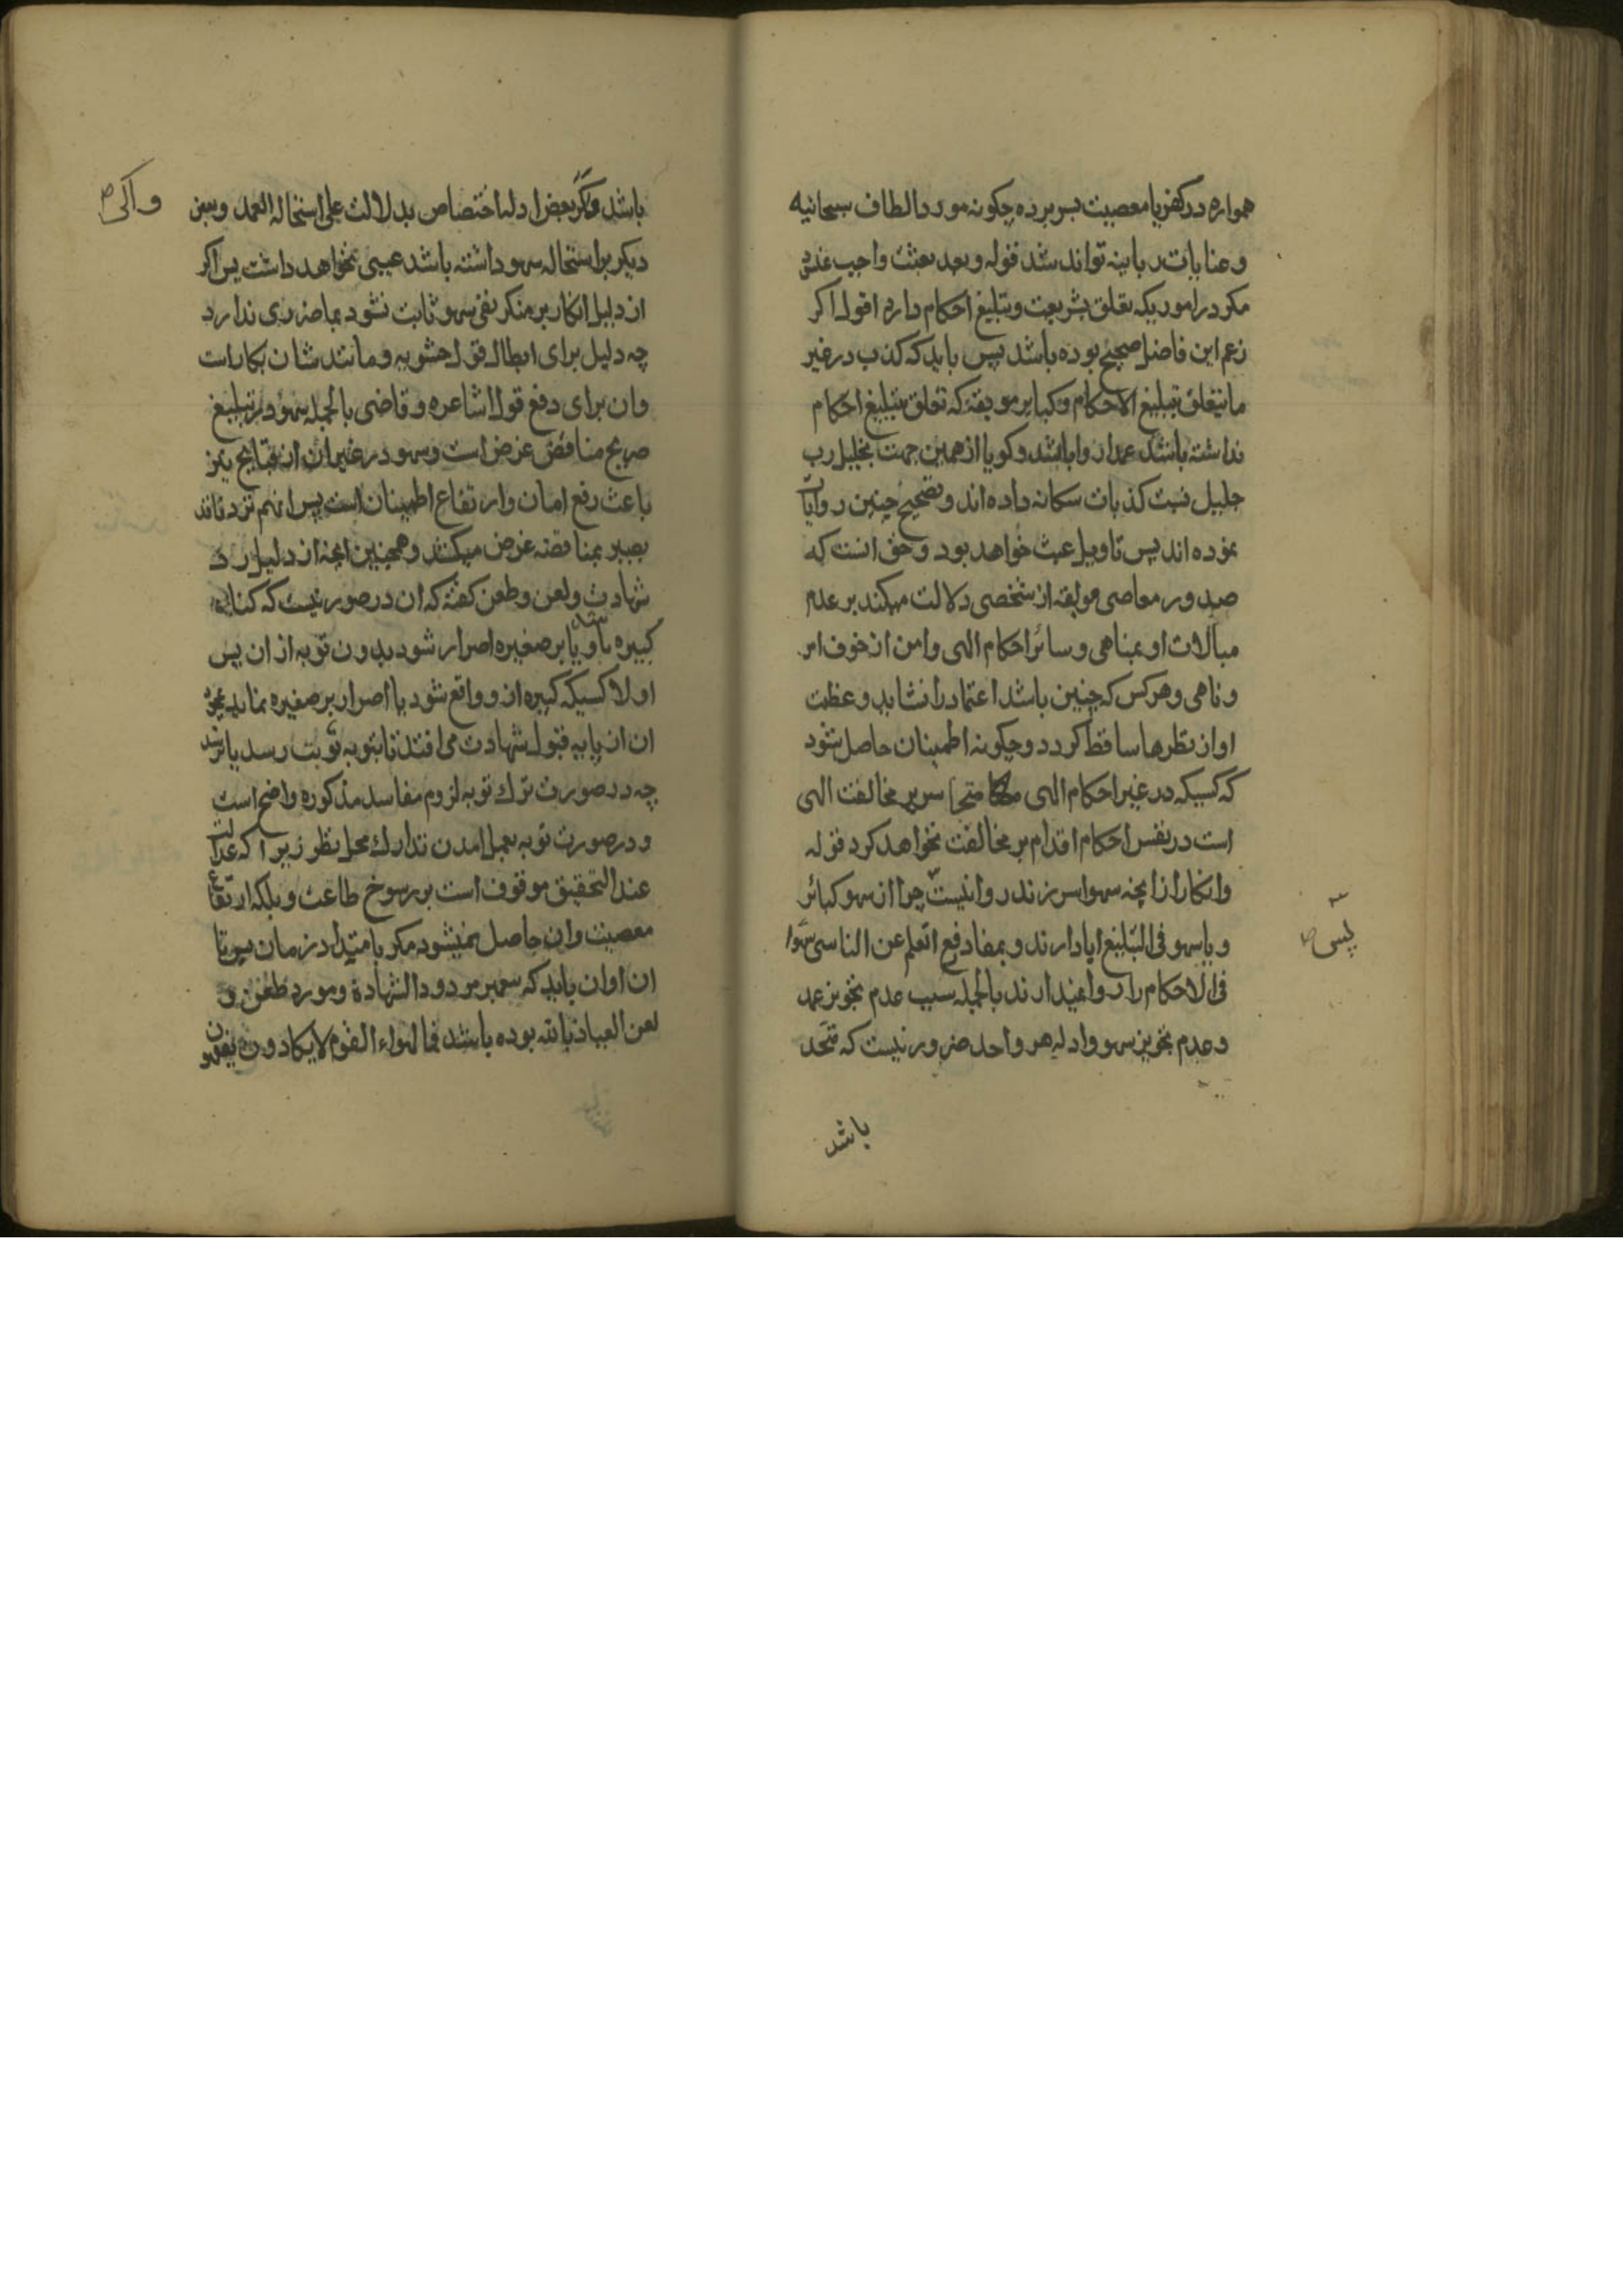 همواره در کفر یا معصیت بسر برده چکونه مورد الطاف سبحانیه
و عنایات ربانیه تواند شد قوله و بعد بعثت واجب
مکر در اموریکه تعلق بشریعت و تبلیغ احکام دارد اقول اکر
زعم این فاضل صحیح بوده باشد پس باید که کذب در غیر
ما یتعلق بتبلیغ الاحکام و کبایر موبقه که تعلق بتبلیغ احکام
نداشته باشد عمدا روا باشد و کویا از همین جهت بخلیل رب
جلیل نسبت کذبات سکانه داده اند و تصحیح چنین روایات
نموده اند پس تاویل عبث خواهد بود و حق انست که
صدور معاصی موبقه از شخصی دلالت میکند بر عدم
مبالات او بمناهی و سائر احکام الهی و امن از خوف امر
و ناهی و هر کس که چنین باشد اعتماد را نشاید و عظمت
او از نظرها ساقط کردد و چکونه اطمینان حاصل شود
که کسیکه در غیر احکام الهی متجاسر بر مخالفت الهی
است در نفس احکام اقدام بر مخالفت نخواهد کرد قوله
و انکار از انچه سهوا سر زند روا نیست چرا از سهو کبائر
و یا سهو فی التبلیغ ابا دارند و بمفاد رفع القلم عن الناسی سهوا
فی الاحکام را روا نمیدارند بالجمله سبب عدم تجویز عمد
و عدم تجویز سهو و ادله هر واحد ضرور نیست که متحد
پس ص
باشد
باشد و اکر بعض ادله اختصاص بدلالت علی استحاله العمد و بعض
دیکر بر استحاله سهو داشته باشد عیبی نخواهد داشت پس اکر
از دلیل انکار بر منکر نفی سهو ثابت نشود بما ضرری ندارد
چه دلیل برای ابطال قول حشویه و مانند شان بکار است
و ان برای دفع قول اشاعره و قاضی بالجمله سهو در تبلیغ
صریح مناقض غرض است و سهو در غیر ان از قبایح نیز
باعث رفع امان و ارتفاع اطمینان است پس انهم نزد ناقد
بصیر بمناقضه غرض میکشد و همچنین انچه از دلیل رد
شهادت و لعن و طعن کفته که ان در صورتیست که کناه
کبیره باشد و یا بر صغیره اصرار شود بدون توبه از ان پس
اولا کسیکه کبیره از و واقع شود یا اصرار بر صغیره نماید بمجرد
ان از پایه قبول شهادت می افتد تا بتوبه نوبت رسد یا نرسد
چه در صورت ترک توبه لزوم مفاسد مذکوره واضح است
و در صورت توبه بعمل امدن تدارک محل نظر زیرا که عدالت
عند التحقیق موقوف است بر رسوخ طاعت و بلکه ارتفاع
معصیت و ان حاصل نمیشود مکر بامتداد زمان پس تا
ان اوان باید که پیمبر مردود الشهادة و مورد طعن و
لعن العیاذ بالله بوده باشد فما لهواء القوم لا یکادون یفقهون
و اکی ص